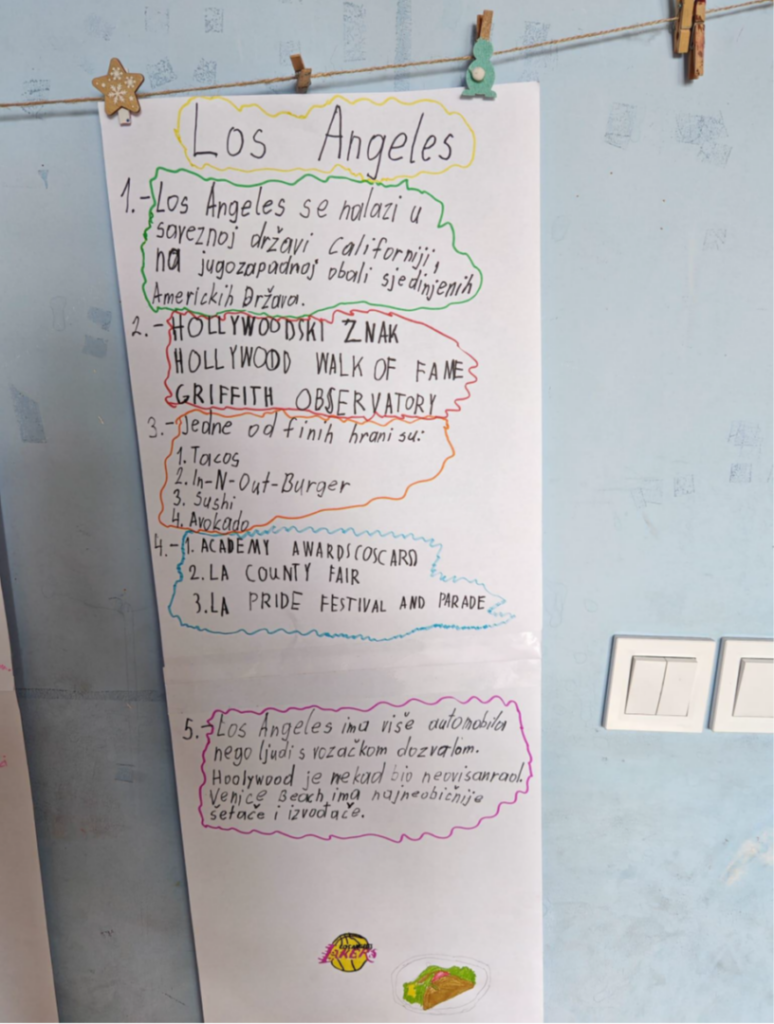 Los Angeles
1.- Los Angeles se nalazi u
saveznoj državi Californiji,
na jugozapadnoj obali sjedinjenih
Americkih Država.
2.- HOLLYWOODSKI ZNAK
HOLLYWOOD WALK OF FAME
GRIFFITH OBSERVATORY
3.- Jedne od finih hrani su:
1. Tacos
2. In-N-Out-Burger
3. Sushi
4. Avokado
4.- 1. ACADEMY AWARDSCOSCARD
2. LA COUNTY FAIR
3. LA PRIDE FESTIVAL AND PARADE
5.- Los Angeles ima više automobila
nego ljudi s vozačkom dozvolom.
Hoolywood je nekad bio neovisan
Venice Beach ima najneobičnije
šetače i izvođače.